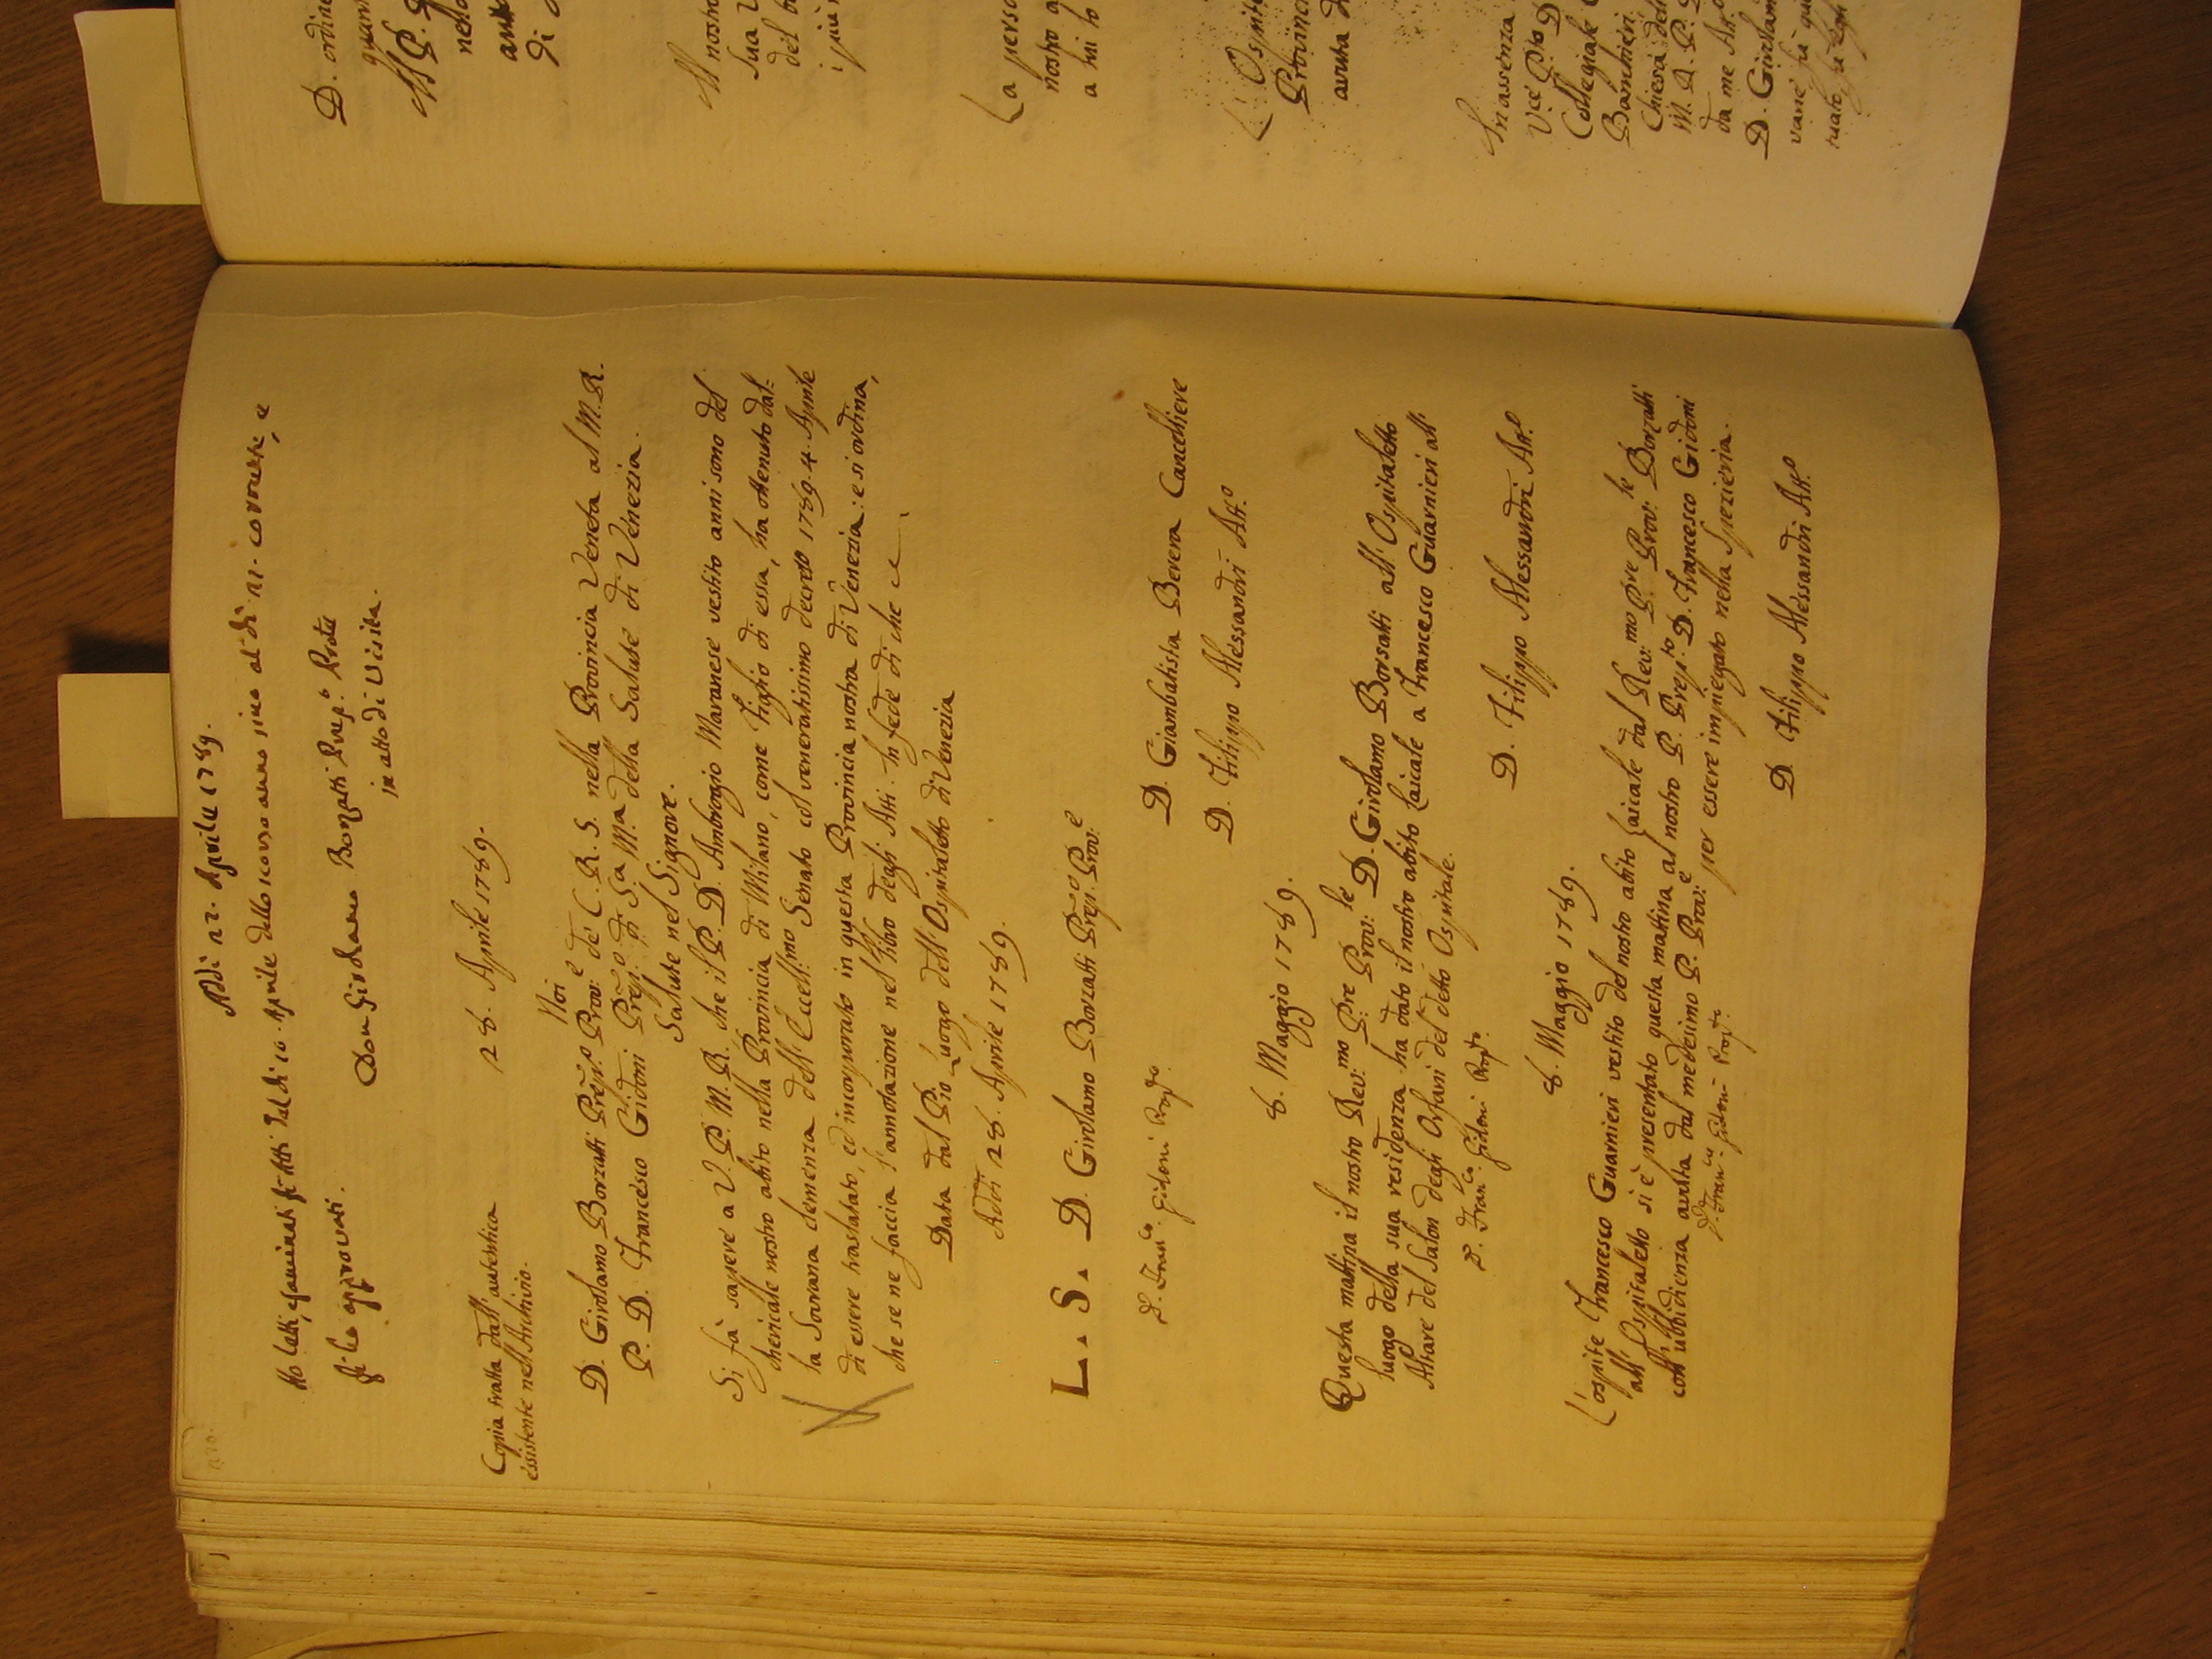 Adi 22. Aprile 1789.
Ho letti, esaminati gl'Atti dal dì 10. Aprile dello scorso anno sino al dì 21. corrente, e
gli ho approvati.
Don Girolamo Borzatti Prep.to Prov.le
in atto di Visita.
Copia tratta dall'autentica
esistente nell'Archivio.
28. Aprile 1789.
Noi
D. Girolamo Borzatti Prep.o Prov:e de' C. R. S. nella Provincia Veneta al M. R.
P. D. Francesco Gidoni Prep.o di S.a M.a della Salute di Venezia.
Salute nel Signore.
Si fà sapere a V. P. M. R. che il P. D. Ambrogio Maranese vestito anni sono del
chericale nostro abito nella Provincia di Milano, come Figlio di essa, ha ottenuto dal:
la Sovrana clemenza dell'Eccell:mo Senato col veneratissimo decreto 1789. 4. Aprile
di essere traslatato, ed incorporato in questa Provincia nostra di Venezia: e si ordina,
che se ne faccia l'annotazione nel libro degli Atti. In fede di che
Data dal Pio Luogo dell'Ospitaletto di Venezia
Addì 28. Aprile 1789.
L. S. D. Girolamo Borzatti Prep.o Prov:e
D. Giambatista Berera Cancelliere
D. Fran.co Gidoni Prep.to
D. Filippo Alessandri Att.o
8. Maggio 1789.
Questa mattina il nostro Rev:mo Pre Prov:le D. Girolamo Borsatti all'Ospitaletto
luogo della sua residenza ha dato il nostro abito Laicale a Francesco Guarnieri all'
Altare del Salon degli Orfani del detto Ospitale.
D. Fran.co Gidoni Prep.to
D. Filippo Alessandri Att.o
8. Maggio 1789.
L'ospite Francesco Guarnieri vestito del nostro abito Laicale dal Rev:mo Pre Prov:le Borzatti
all'Ospitaletto si è presentato questa mattina al nostro P. Prep:to D. Francesco Gidoni
coll'ubbidienza avuta dal medesimo P. Prov:e per essere impiegato nella Spezieria.
D. Fran.co Gidoni Prep.to
D. Filippo Alessandri Att.o
D. ordine
Al P.
di
Al nostro
sua
del
i più
La perso
nostro
a lui lo
L'Ospite
Provinc
avuta
In assenza
Vice
Collegiale
Banchieri
Chiesa del
M. R. P.
da me Att.o
D. Girolam